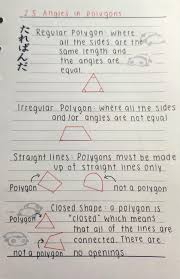 2.5 Angles in Polygons
たれぱんだ
Regular Polygon: where
all the sides are the
same length and
the angles are
equal
Irregular Polygon: where all the sides
and/or angles are not equal
Straight lines: Polygons must be made
up of straight lines only
Polygon
not a polygon
Closed shape: a polygon is
"closed" which means
Polygon
that all of the lines are
connected. There are
not a polygon no openings